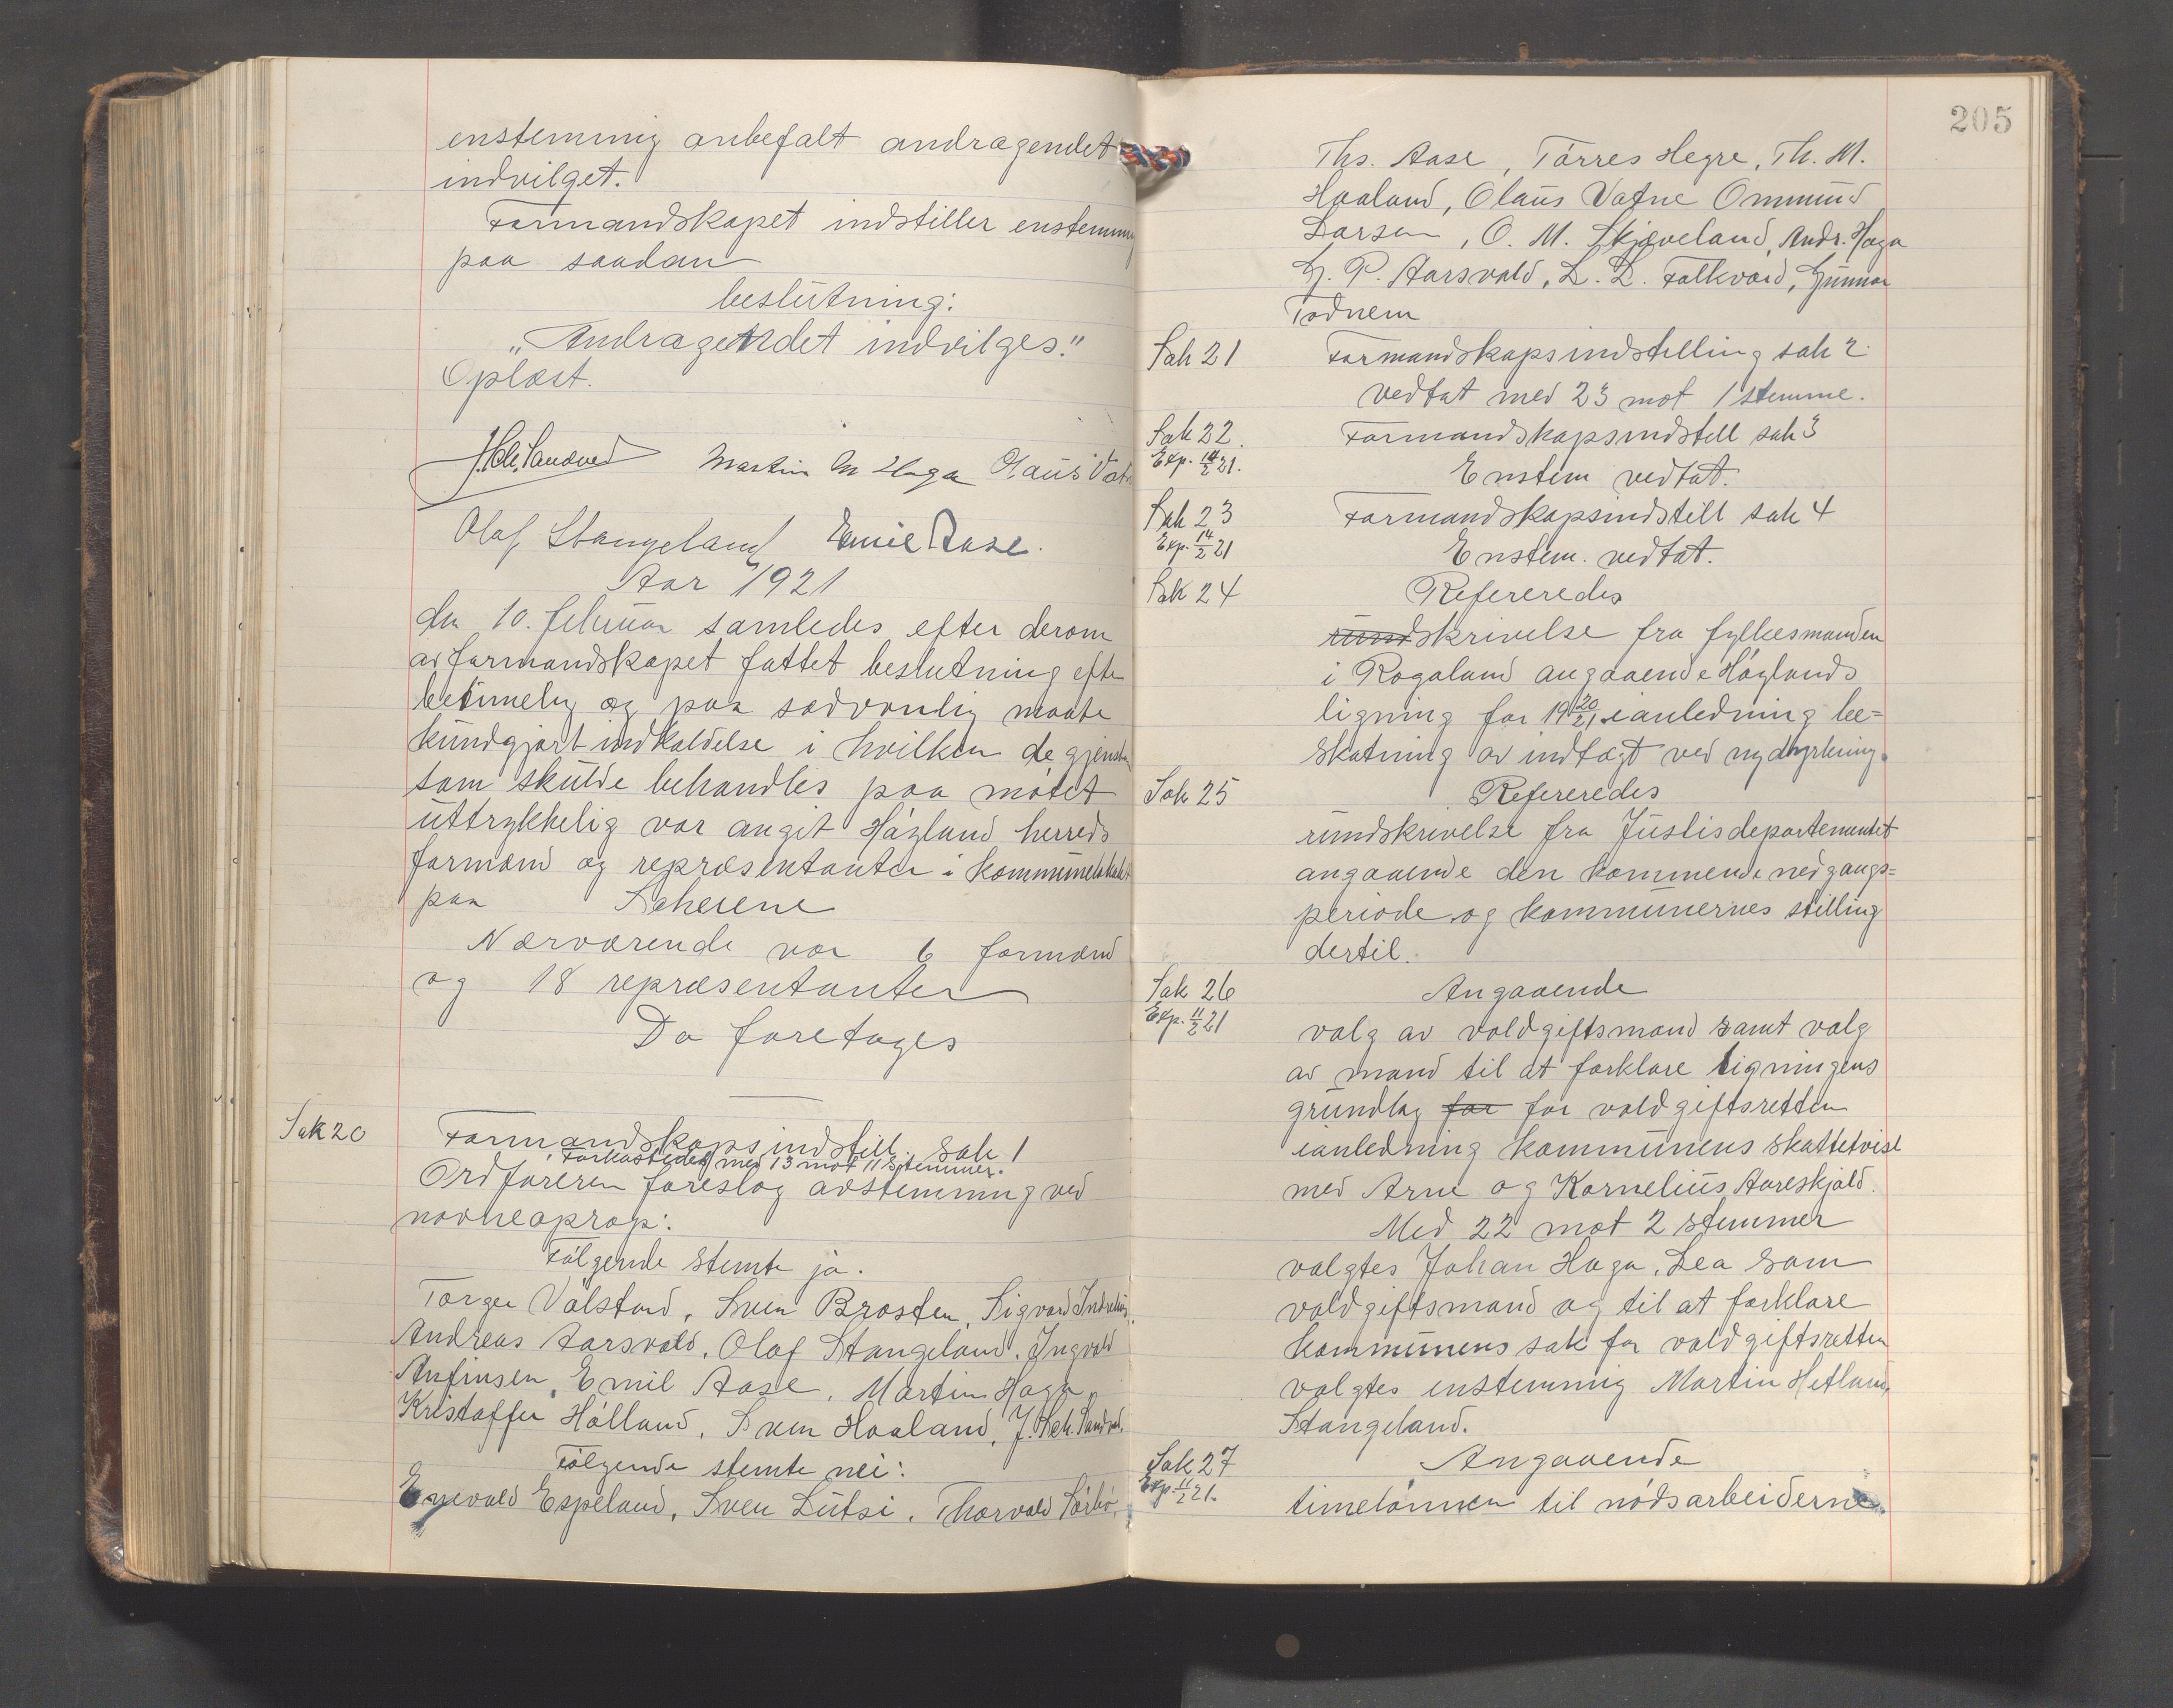 enstemmig anbefalt andragendet
indvilget.
Formandskapet indstiller enstemmig
paa saadan
beslutning:
„Andragendet indvilges."
Oplæst.
Martin M Haga Olaus Vat
Olaf Stangeland Emil Aase.
Aar 1921
den 10. februar samledes efter derom
av formandskapet fattet beslutning efter
betimelig og paa sædvanlig maate
kundgjort indkaldelse i hvilken de gjenst
som skulde behandles paa møtet
uttrykkelig var angit Høyland herreds
formænd og repræsentanter i kommunelokalet
paa
Nærværende var 6 formænd
og 18 repræsentanter
Da foretages
Sak 20
Formandskapsindstill. sak 1
Forkastedes med 13 mot 11 stemmer.
Ordføreren foreslog avstemning ved
navneoprop:
Følgende stemte ja.
Torger Vølstad, Sven Brosten, Sigvard
Andreas Aarsvold, Olaf Stangeland, Ingvald
Anfinsen, Emil Aase, Martin Haga,
Kristoffer Hølland, Sven Haaland, J. Sch. Sandved.
Følgende stemte nei:
Enevald Espeland, Sven Lutsi, Thorvald Sørbø,
205
Ths. Aase, Tørres Hegre, Th. M.
Haaland, Olaus Vatne Ommund
Larsen, O. M. Skjæveland, Andr. Haga
G. P. Aarsvold, L. L. Folkvord, Gunnar
Tødnem
Sak 21
Formandskapsindstilling sak 2
vedtat med 23 mot 1 stemme.
Sak 22.
Exp. 14/2 21.
Formandskapsindstill sak 3
Enstem vedtat.
Sak 23
Exp. 14/2 21
Formandskapsindstill sak 4
Enstem. vedtat.
Sak 24
Refereredes
rundskrivelse fra fylkesmanden
i Rogaland angaaende Høylands
ligning for 1920/21 ianledning be=
skatning av indtægt ved nydyrkning.
Sak 25
Refereredes
rundskrivelse fra Justisdepartementet
angaaende den kommende nedgangs=
periode og kommunernes stilling
dertil.
Sak 26
Exp. 11/2 21
Angaaende
valg av voldgiftsmand samt valg
av mand til at forklare ligningens
grundlag for for voldgiftsretten
ianledning kommunens skattetvist
med Arne og Kornelius Aareskjold.
Med 22 mot 2 stemmer
valgtes Johan Haga, Lea som
voldgiftsmand og til at forklare
kommunens sak for voldgiftsretten
valgtes enstemmig Martin Hetland,
Stangeland.
Sak 27
Exp. 11/2 21.
Angaaende
timelønnen til nødsarbeiderne.